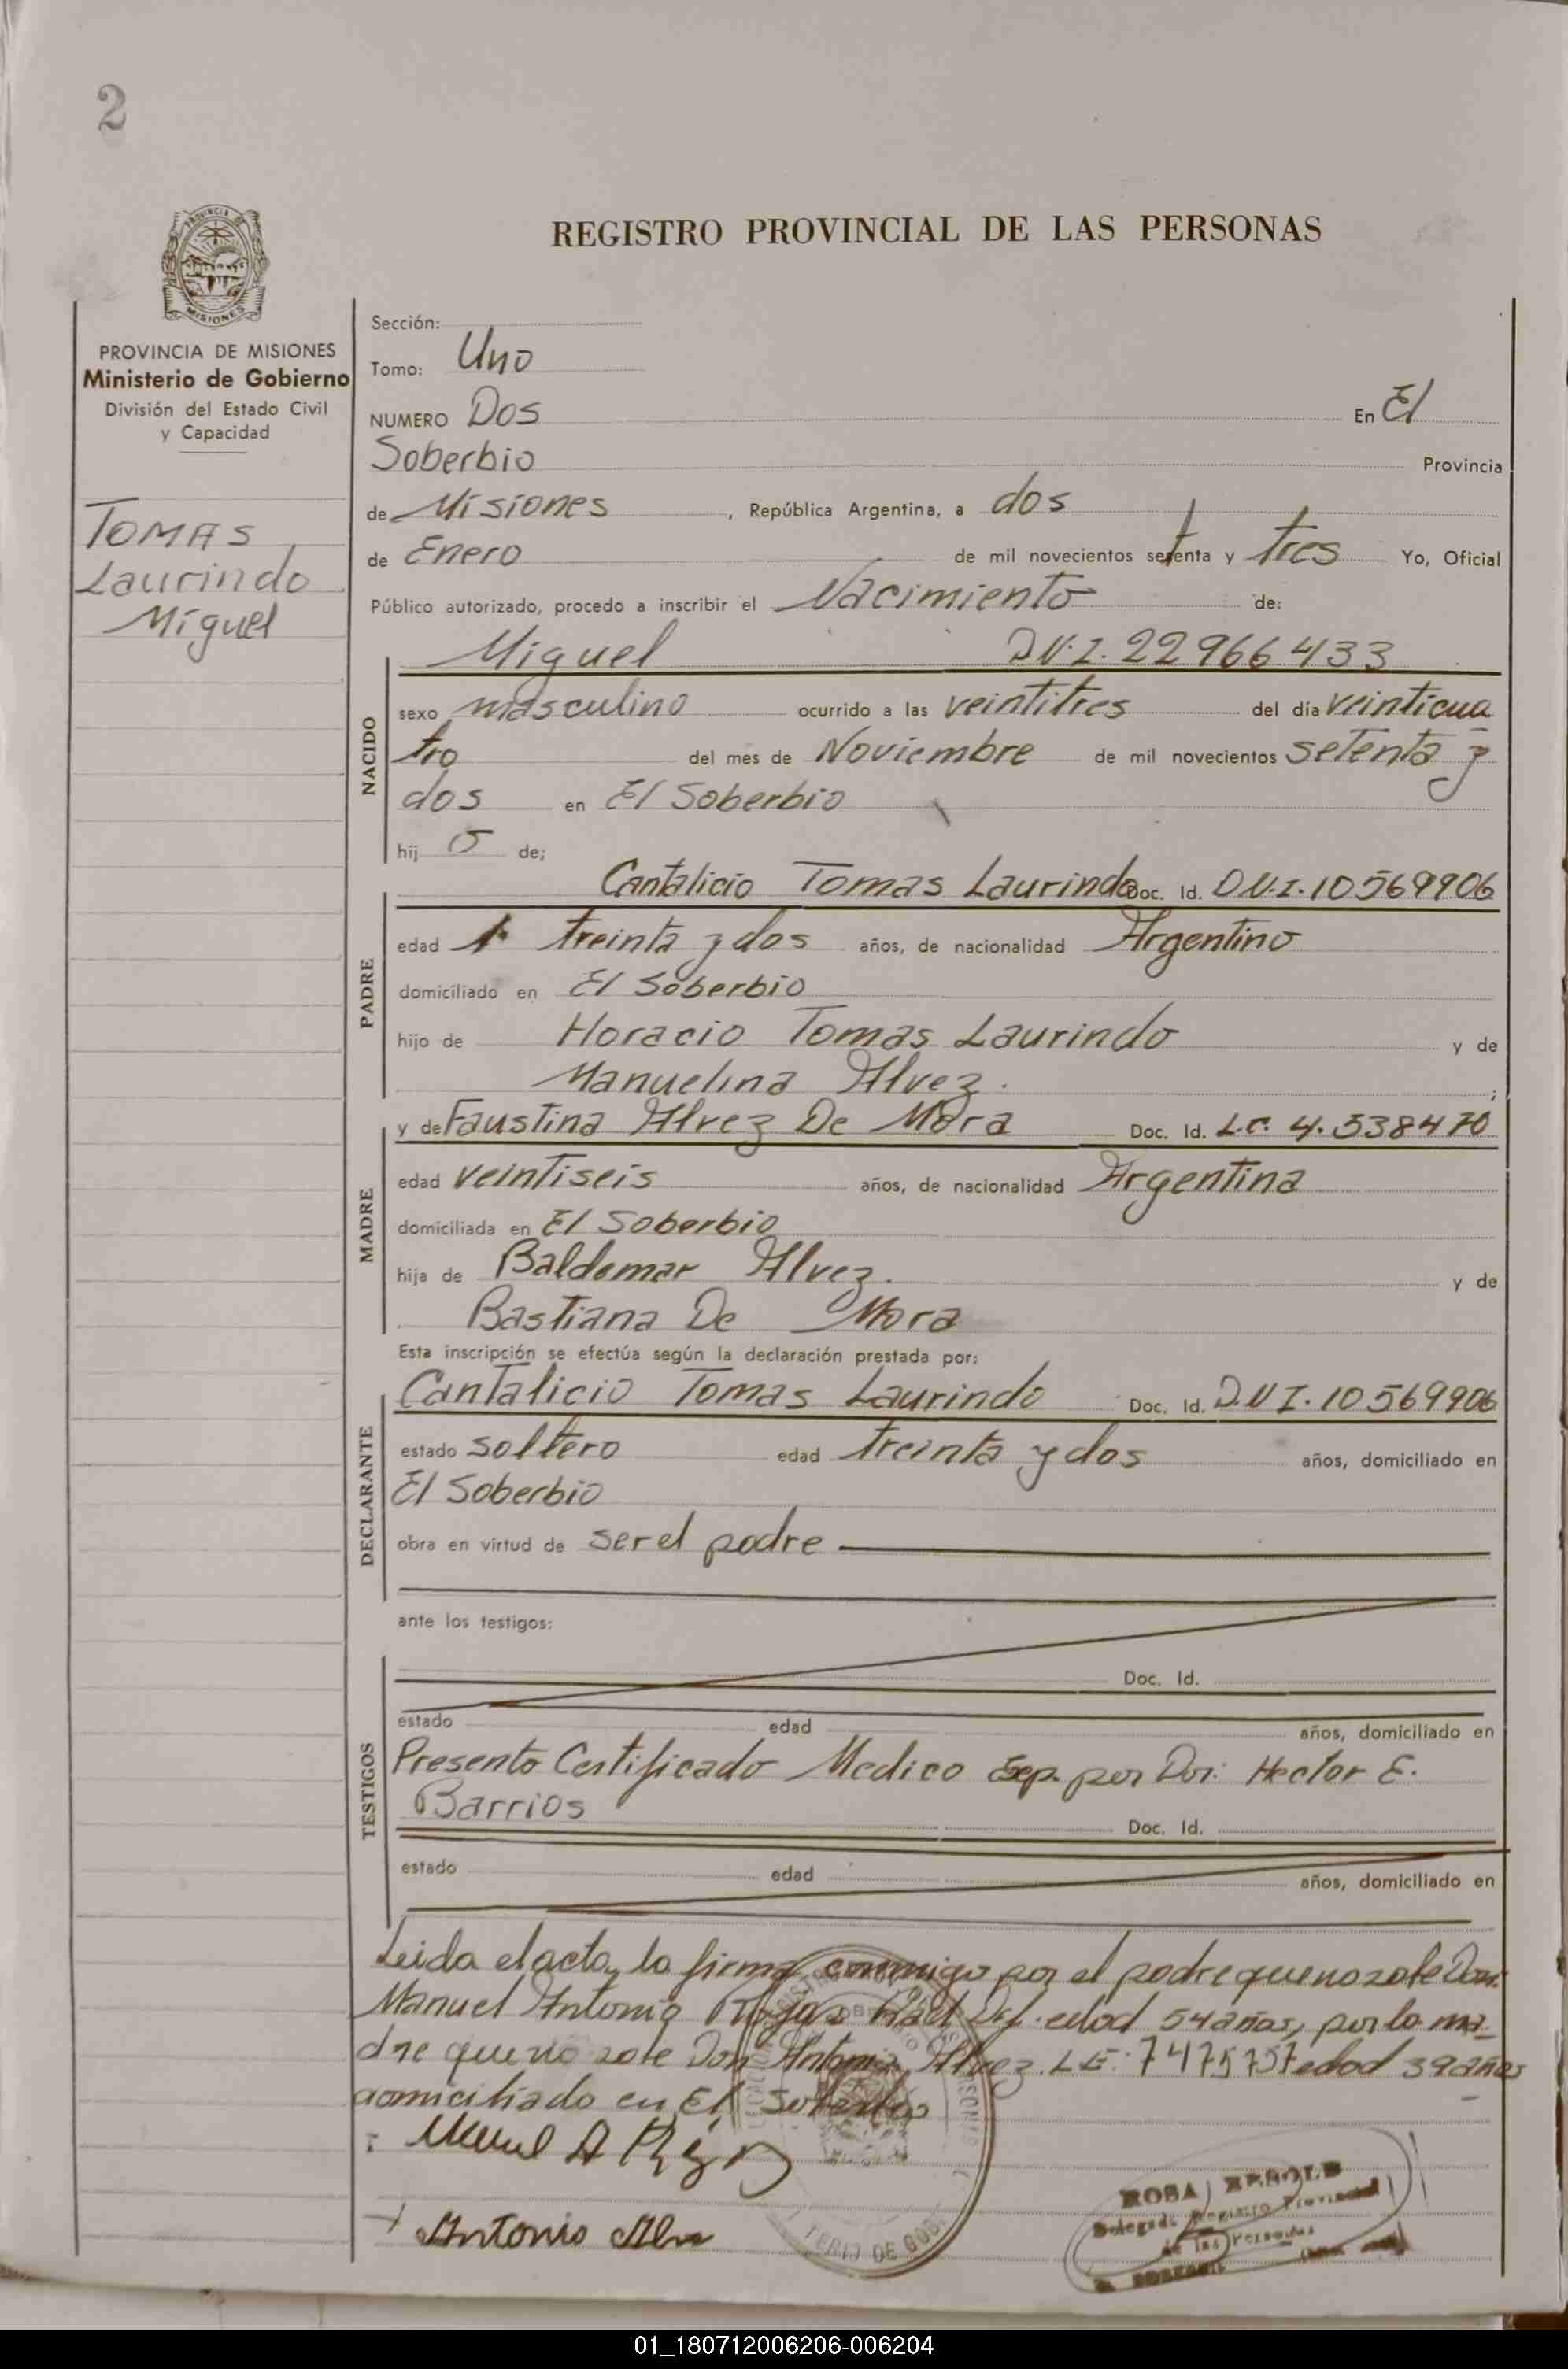 2
REGISTRO PROVINCIAL DE LAS PERSONAS
PROVINCIA DE
MISIONES
PROVINCIA DE MISIONES
Ministerio de Gobierno
División del Estado Civil
y Capacidad
TOMAS
Laurindo
Miguel
Sección:
Tomo: Uno
NUMERO Dos En El
Soberbio Provincia
de Misiones, República Argentina, a dos
de Enero de mil novecientos setenta y tres Yo, Oficial
Público autorizado, procedo a inscribir el Nacimiento de:
NACIDO
Miguel D.N.I. 22966433
sexo masculino ocurrido a las veintitres del día veinticua
tro del mes de Noviembre de mil novecientos setenta y
dos en El Soberbio
hij o de;
PADRE
Cantalicio Tomas Laurindo Doc. Id. D.N.I. 10569906
edad treinta y dos años, de nacionalidad Argentino
domiciliado en El Soberbio
hijo de Horacio Tomas Laurindo y de
Manuelina Alvez.;
MADRE
y de Faustina Alvez De Mora Doc. Id. L.C. 4.538470
edad veintiseis años, de nacionalidad Argentina
domiciliada en El Soberbio
hija de Baldomar Alvez. y de
Bastiana De Mora
Esta inscripción se efectúa según la declaración prestada por:
DECLARANTE
Cantalicio Tomas Laurindo Doc. Id. D.N.I. 10569906
estado soltero edad treinta y dos años, domiciliado en
El Soberbio
obra en virtud de ser el padre
ante los testigos:
TESTIGOS
Doc. Id.
estado edad años, domiciliado en
Presento Certificado Medico Exp. por Dor: Hector E.
Barrios
Doc. Id.
estado edad años, domiciliado en
Leida el acta, la firma conmigo por el padre que no sabe Don:
Manuel Antonio Rojas edad 54 años, por la ma
dre que no sabe Don Antonio Alvez L.E: 7475757 edad 39 años
domiciliado en El Soberbio
Manuel A Rojas
Antonio Alve
ROSA
Registro Provincial
de las Personas
01_180712006206-006204